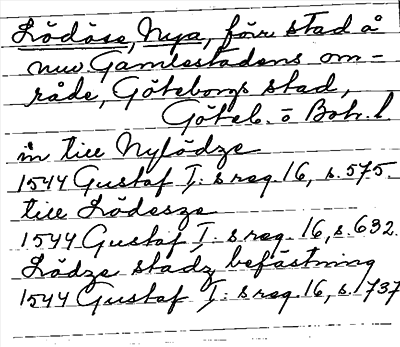 Lödöse, Nya, förr stad å
nuv. Gamlestadens om-
råde, Göteborgs stad,
Göteb. o Boh. l
in till Nylödze
1544 Gustaf I:s reg. 16, s. 575.
till Lödesze
1544 Gustaf I:s reg. 16, s. 632.
Lödze stadz befästning
1544 Gustaf I:s reg. 16, s. 737